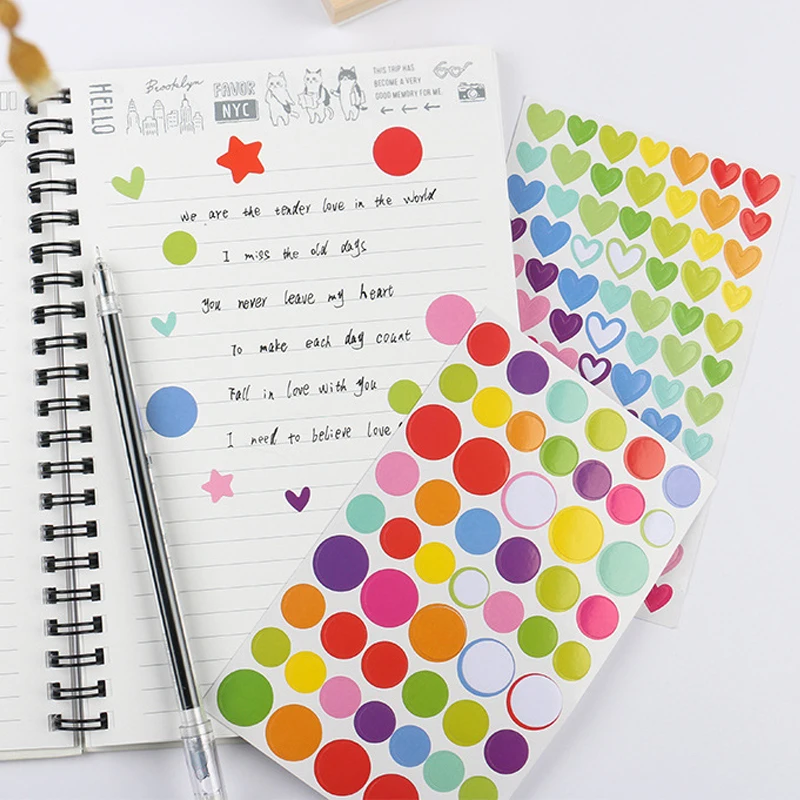 HELLO
Brooklyn
FAVOR
NYC
THIS TRIP HAS
BECOME A VERY
GOOD MEMORY FOR ME.
We are the tender love in the world
I miss the old days
You never leave my heart
To make each day count
Fall in love with you
I need to believe love